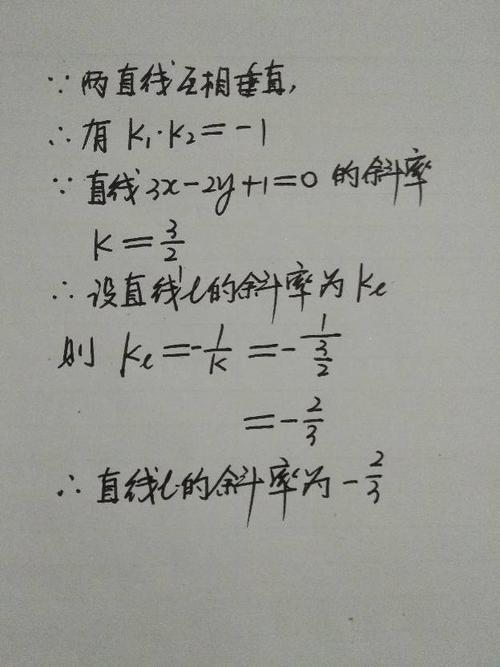 ∵两直线互相垂直,
∴有 K₁·K₂=-1
∵直线3x-2y+1=0 的斜率
K=3/2
∴设直线l的斜率为Kℓ
则 Kℓ=-1/K=-1/(3/2)
=-2/3
∴直线l的斜率为-2/3